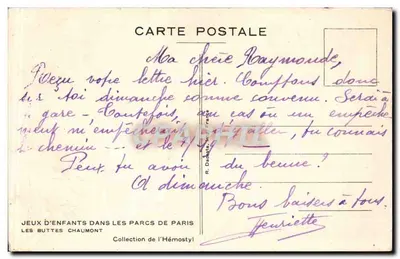 CARTE POSTALE
Ma chère Raymonde,
Reçu votre lettre hier. Comptons donc
sur toi dimanche comme convenu. Serai à
gare. Toutefois, au cas ou un empêche
ment m'empêcherait, tu connais
chemin et le
Peux tu avoir du beurre?
A dimanche.
Bons baisers à tous.
Henriette
JEUX D'ENFANTS DANS LES PARCS DE PARIS
LES BUTTES CHAUMONT
Collection de l'Hémostyl